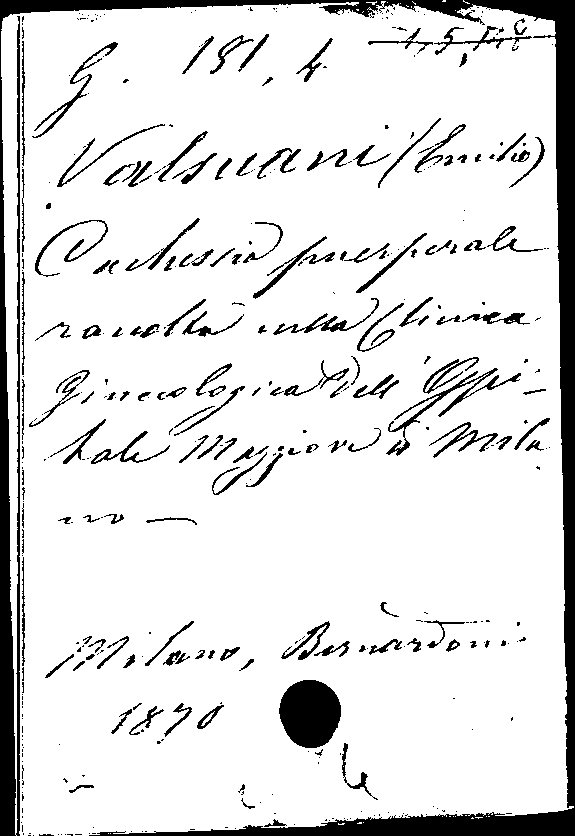 G. 181, 4.
Valsuani (Emilio)
Cachessia puerperale
raccolta nella Clinica
Ginecologica dell' Ospi-
tale Maggiore di Mila
no —
Milano, Bernardoni
1870